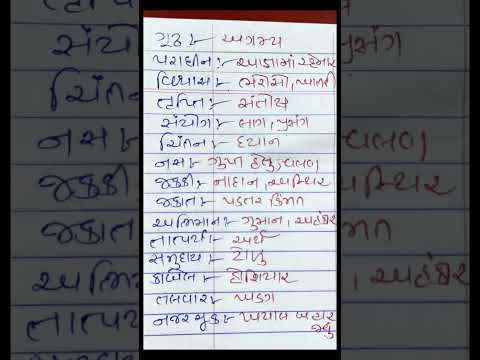 ગૂઢ :- અગમ્ય
પરાધીન :- આજ્ઞામાં રહેનાર
વિશ્વાસ :- ભરોસો, ખાતરી
તૃપ્તિ :- સંતોષ
સંયોગ :- લાગ, પ્રસંગ
ચિંતન :- ધ્યાન
નસ :- ગુપ્ત હેતુ, વલણ
જક્કી :- નાદાન, અસ્થિર
જકાત :- પડતર કિંમત
અભિમાન :- ગુમાન, અહંકાર
તાત્પર્ય :- અર્થ
સમુદાય :- ટોળુ
કાબેલ :- હોંશિયાર
તલવાર :- ખડગ
નજરચૂક :- ખ્યાલ બહાર
જવુ